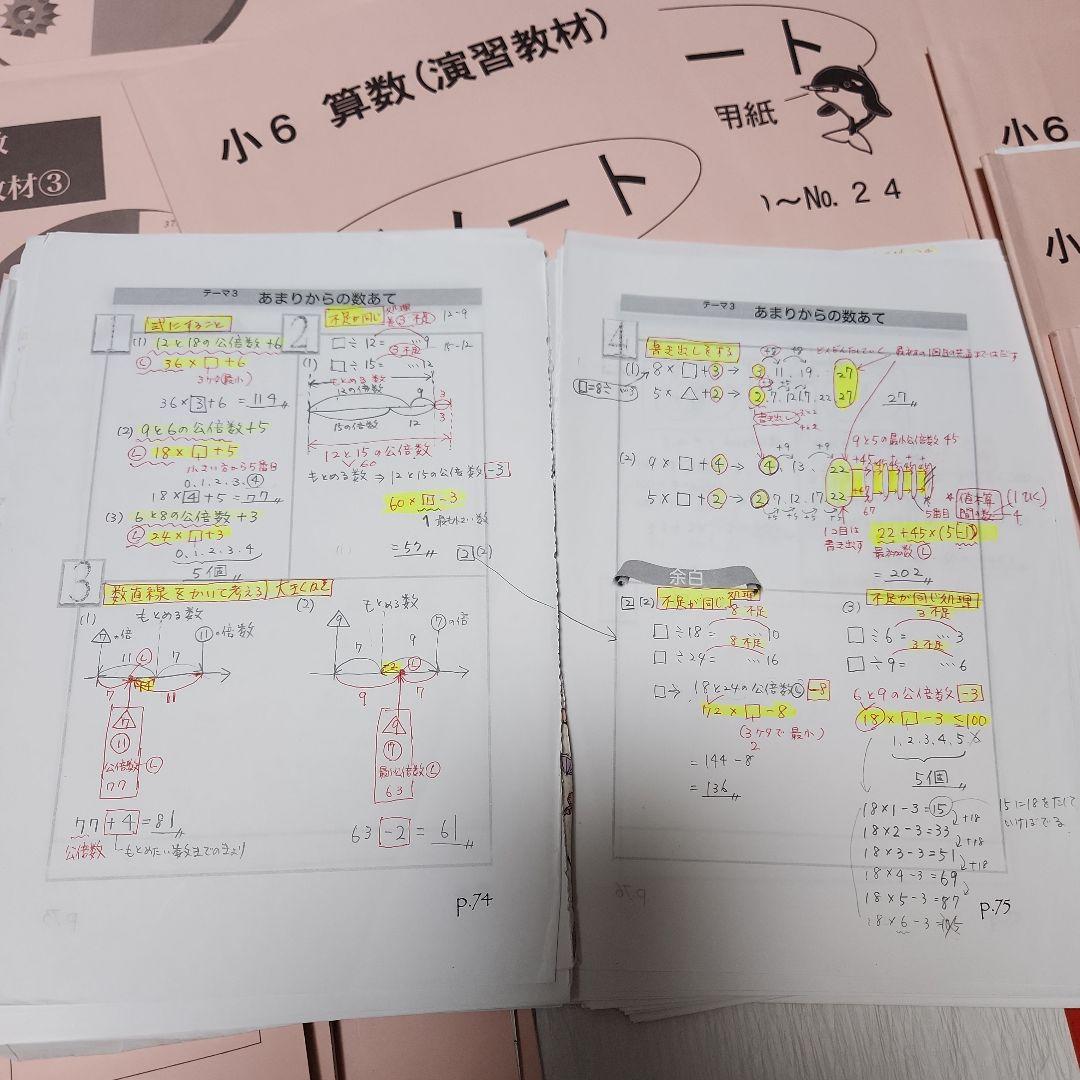 小6 算数(演習教材)
ート
用紙
ート
)〜No.24
数
教材③
小6
小
テーマ3 あまりからの数あて
1
式にすること
(1) 12と18の公倍数+6
Ⓛ 36×□+6
3ケタ(最小)
36×3+6 =114
(2) 9と6の公倍数+5
Ⓛ 18×□+5
小さい方から5番目
0.1.2.3.④
18×4+5=77
(3) 6と8の公倍数+3
Ⓛ 24×□+3
0.1.2.3.4
5個
2
不足が同じ 処理
12-9
(1)
□÷12= …9
3不足
15-12
□÷15= …12
もとめる数
12の倍数 9 3
15の倍数 12 3
12と15の公倍数
60
もとめる数→12と15の公倍数-3
60×□-3
=57
2 (2)
3
数直線をかいて考える
(1) もとめる数
⑪の倍数
11 Ⓛ 7
7 +4 11
⑪
公倍数Ⓛ
77
77+4=81
公倍数
もとめたい数までのきょり
(2) もとめる数
9 ⑦の倍
9 Ⓛ
-2
9 7
最小公倍数Ⓛ
63
63-2=61
p.74
テーマ3 あまりからの数あて
4
書き出しをする
(1) 8×□+3→3.11.19. 27
+8 +8
5×△+2→2.7.12.17.22.27
27
書き出し
9と5の最小公倍数45
(2) 9×□+4→④ 13. 22
+9 +9
5×□+2→② 7.12.17 22
+5 +5 +5 +5
+45 67
5番目
1コ目は
書き出す
最初の数Ⓛ
22+45×(5-1)
=202
余白
2 (2) 不足が同じ処理
8不足
□÷18= …10
8不足
□÷24= …16
□→18と24の公倍数Ⓛ-8
72×□-8
(3ケタで最小)
2
=144-8
=136
(3) 不足が同じ処理
3不足
□÷6= …3
3不足
□÷9= …6
6と9の公倍数-3
18×□-3≦100
1.2.3.4.5
5個
18×1-3=15
+18
18×2-3=33
+18
18×3-3=51
+18
18×4-3=69
18×5-3=87
18×6-3=105
15に18をたして
いけばでる
p.75